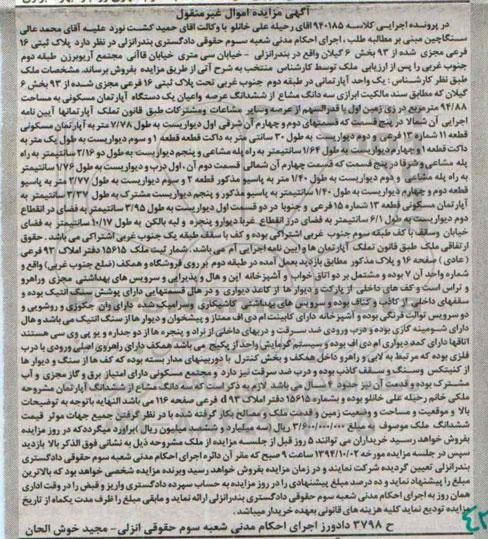 آگهی مزایده اموال غیرمنقول
در پرونده اجرایی کلاسه 940185 اقای رحیله علی خانلو با وکالت اقای حمید کشت نورد علیه آقای محمد عالی
سنگاچین مبنی بر مطالبه طلب ، اجرای احکام مدنی شعبه سوم حقوقی دادگستری بندرانزلی در نظر دارد پلاک ثبتی 16
فرعی مجزی شده از 93 بخش 6 گیلان واقع در بندرانزلی - خیابان سی متری خیابان قاآنی مجتمع آریوبرزن طبقه دوم
جنوب غربی را پس از ارزیابی ملک توسط کارشناس منتخب به شرح آتی از طریق مزایده بفروش برساند. مشخصات ملک
طبق نظر کارشناس : یک واحد آپارتمانی در طبقه دوم جنوب غربی تحت پلاک ثبتی 16 فرعی مجزی شده از 93 بخش 6
گیلان که مطابق سند مالکیت ابرازی سه دانگ مشاع از ششدانگ عرصه واعیان یک دستگاه آپارتمان مسکونی به مساحت
94/88 مترمربع در زی زمین اول با قدرالسهم از عرصه وسایر مشاعات ومشترکات طبق قانون تملک آپارتمانها آیین نامه
اجرایی آن شمالا در پنج قسمت که قسمتهای دوم و چهارم آن شرقی اول دیواریست به طول 7/78 متر به آپارتمان مسکونی
قطعه 11 شماره 13 فرعی و دوم دیواریست به طول 30 سانتی متر به داکت قطعه قطعه 1 و سوم دیواریست به طول یک متر به
داکت قطعه 1 و چهارم دیواریست به طول 1/64 سانتیمتر به راه پله مشاعی و پنجم دیواریست به طول دو 3/16 سانتیمتر به راه
پله مشاعی و شرقا در پنج قسمت که قسمت چهارم آن شمالی قسمت دوم آن ، اول درب و دیواریست به طول 1/76 سانتیمتر
به راه پله مشاعی و دوم دیواریست به طول 1/40 متر به پاسیو مذکور قطعه 2 و سوم دیواریست به طول 2/77 متر به پاسیو
قطعه دوم و چهارم دیواریست به طول 1/40 سانتیمتر به پاسیو مذکور و پنجم دیواریست مشترک به طول 3/37 سانتیمتر به
آپارتمان مسکونی قطعه 13 شماره 15 فرعی و جنوبا در دو قسمت اول دیواریست به طول 3/95 سانتیمتر به فضای در انقطاع
دوم دیواریست به طول 6/1 سانتیمتر به فضای درز انقطاع غربا دیوارو پنجره و لبه بالکن به طول 10/17 سانتیمتر به فضای
خیابان وسقف با کف طبقه سوم جنوب غربی اشتراکی بوده و کف با سقف طبقه یک جنوب غربی اشتراکی می باشد. حقوق
ارتفاقی ملک طبق قانون تملک آپارتمان ها و ایین نامه اجرایی آم می باشد. شمار ثبت ملک 15615 دفتر املاک 93 فرعی
(عادی) صفحه 16 و پلاک مذکور مطابق بازدید بعمل آمده در طبقه دوم بر روی فروشگاه و همکف (ضلع جنوب غربی) واقع و
شماره واحد آن 7 بوده و مشتمل بر دو اتاق خواب و آشپزخانه اپن و هال و پذیرایی و سرویس های بهداشتی مجزی وراهرو
و تراس است و کف های داخلی از پارکت و دیوار ها از کاغذ دیواری و در هال قسمتهایی دارای پوشش سنگ آنتیک بوده و
سقفهای داخلی از کاذب و کناف بوده و سرویس های بهداشتی کاشیکاری و سرامیک شده دارای وان جکوزی و روشویی و
دو سرویس توالت فرنگی بوده و آشپزخانه دارای کابینت ام دی اف ممتاز و پیشخوان و دیوار ها از سنگ آنتیک می باشد و هال
دارای شومینه گازی بوده و درب ورودی ضد سرقت و دربهای داخلی از نراد و پنجره ها از دو جداره و یو پی وی سی هستند
اتاقها دارای کمد دیواری ام دی اف بوده و سیستم گرمایش واحد از پکیج می باشد همکف دارای راهروی اصلی ورودی با درب
فلزی بوده که مرتبط به لابی و راهرو داخل همکف و بخش کنترل با دوربینهای مدار بسته بوده که کف ها از سنگ و دیوار ها
از کنیتکس وسنگ و سقف کاذب بوده و درب ضد سرقت نیز دارد و مجتمع مسکونی دارای امتیاز برق و گاز مجزی و آب
مشترک بوده و قدمت آن نیز حدود 6 سال می باشد. لازم به ذکر است که سه دانگ مشاع از ششدانگ آپارتمان مشروحه
ملکی خانم رحیله علی خانلو بوده و بشماره 15615 دفتر املاک 93 فرعی صفحه 116 می باشد النهایه باتوجه به توضیحات
بالا و موقعیت و مساحت و وضعیت زمین و قدمت ملک و مصالح بکار گرفته شده با در نظر گرفتن جمیع جهات موثر قیمت
ششدانگ ملک موصوف به مبلغ 3/600/000/000 ریال (سه میلیارد و ششصد میلیون ریال) براورد میگردد که در روز مزایده
بفروش خواهد رسید خریداران می توانند 5 روز قبل از جلسه مزایده از ملک مشروحه ذیل به نشانی فوق الذکر بالا بازدید
سپس در جلسه مزایده مورخه 1394/10/02 ساعت 9 صبح که مقر آن دائره اجرای احکام مدنی شعبه سوم حقوقی دادگستری
بندرانزلی تعیین گردیده شرکت نمایند و در زمان مزایده بفروش خواهد رسید وبرنده مزایده شخصی خواهد بود که بالاترین
مبلغ را پیشنهاد نماید و ده درصد مبلغ پیشنهادی را در روز مزایده به حساب سپرده دادگستری واریز و قبض را در وقت اداری
همان روز به اجرای احکام مدنی شعبه سوم حقوقی دادگستری بندرانزلی ارائه نماید و مابقی مبلغ را ظرف مدت یکماه از تاریخ
مزایده تودیع نماید کلیه هزینه های قانونی بعهده خریدار میباشد.
ح 3798 دادورز اجرای احکام مدنی شعبه سوم حقوقی انزلی - مجید خوش الحان
42